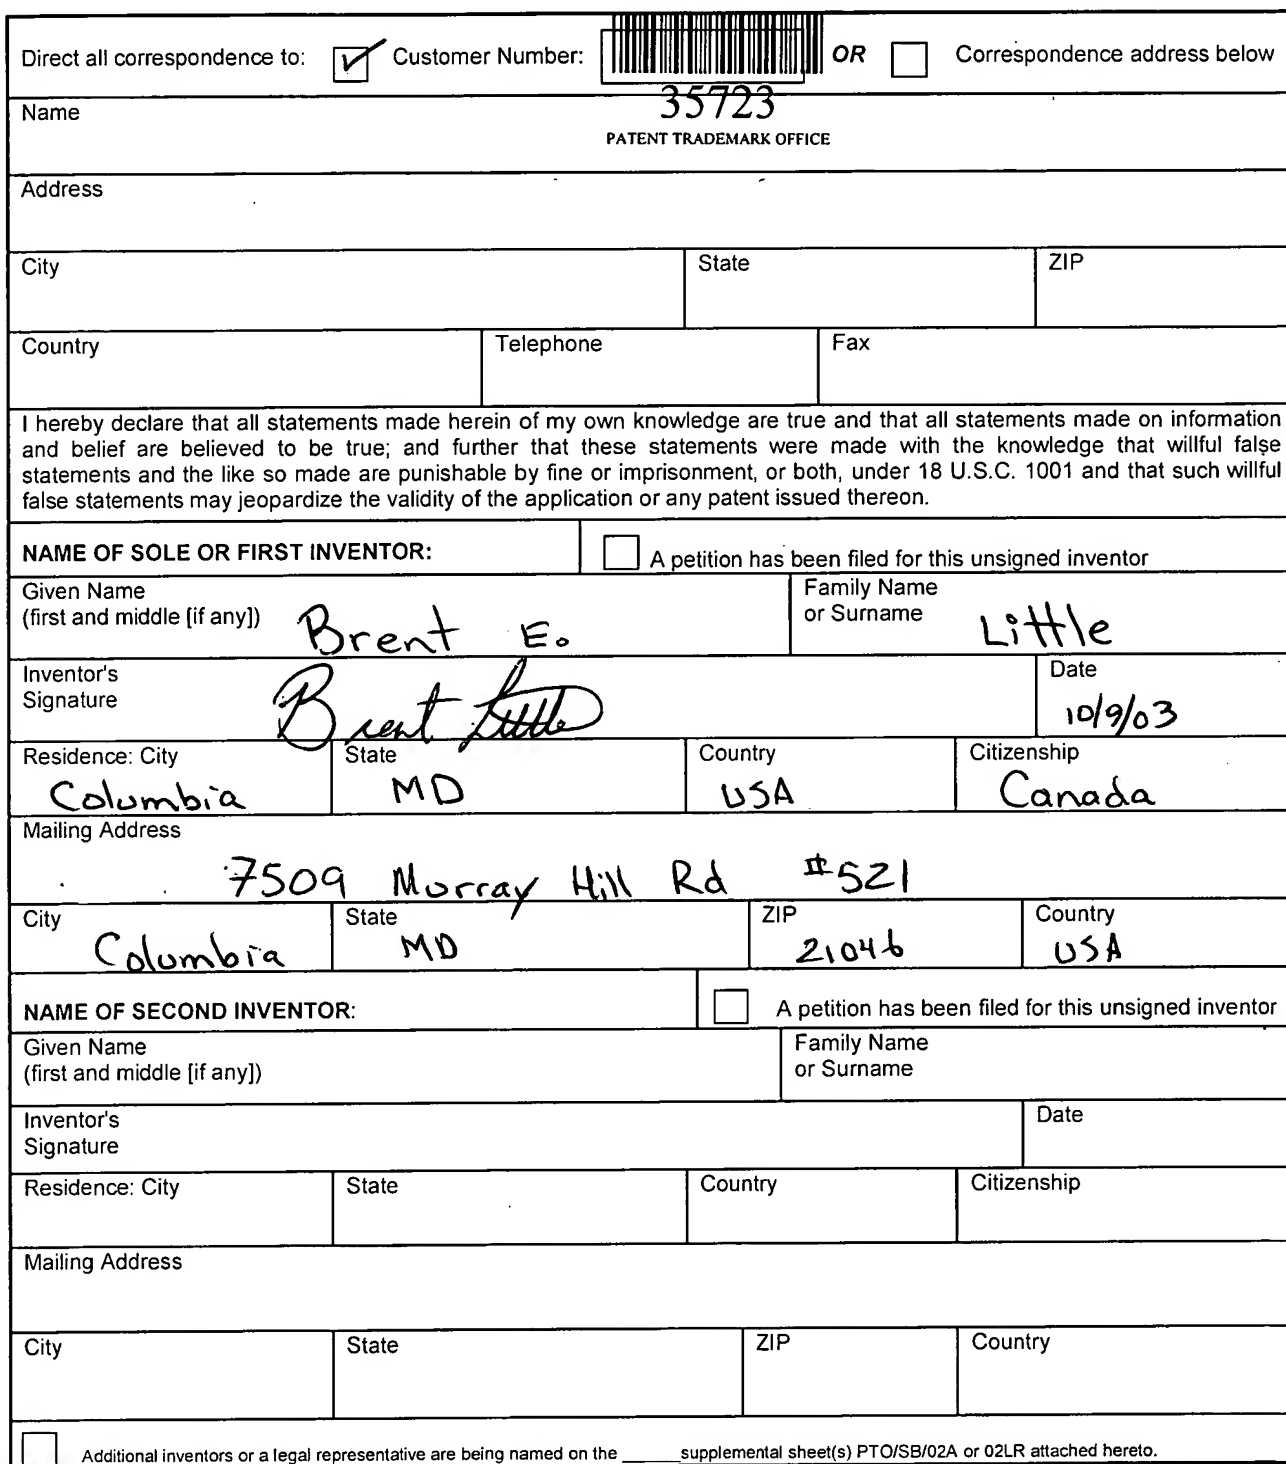 Direct all correspondence to: Customer Number: OR Correspondence address below
35723
PATENT TRADEMARK OFFICE
Name
Address
City State ZIP
Country Telephone Fax
I hereby declare that all statements made herein of my own knowledge are true and that all statements made on information
and belief are believed to be true; and further that these statements were made with the knowledge that willful false
statements and the like so made are punishable by fine or imprisonment, or both, under 18 U.S.C. 1001 and that such willful
false statements may jeopardize the validity of the application or any patent issued thereon.
NAME OF SOLE OR FIRST INVENTOR: A petition has been filed for this unsigned inventor
Given Name
(first and middle [if any]) Brent E.
Family Name
or Surname Little
Inventor's
Signature Brent Little
Date
10/9/03
Residence: City State Country Citizenship
Columbia MD USA Canada
Mailing Address
7509 Murray Hill Rd #521
City State ZIP Country
Columbia MD 21046 USA
NAME OF SECOND INVENTOR: A petition has been filed for this unsigned inventor
Given Name
(first and middle [if any])
Family Name
or Surname
Inventor's
Signature
Date
Residence: City State Country Citizenship
Mailing Address
City State ZIP Country
Additional inventors or a legal representative are being named on the _____ supplemental sheet(s) PTO/SB/02A or 02LR attached hereto.